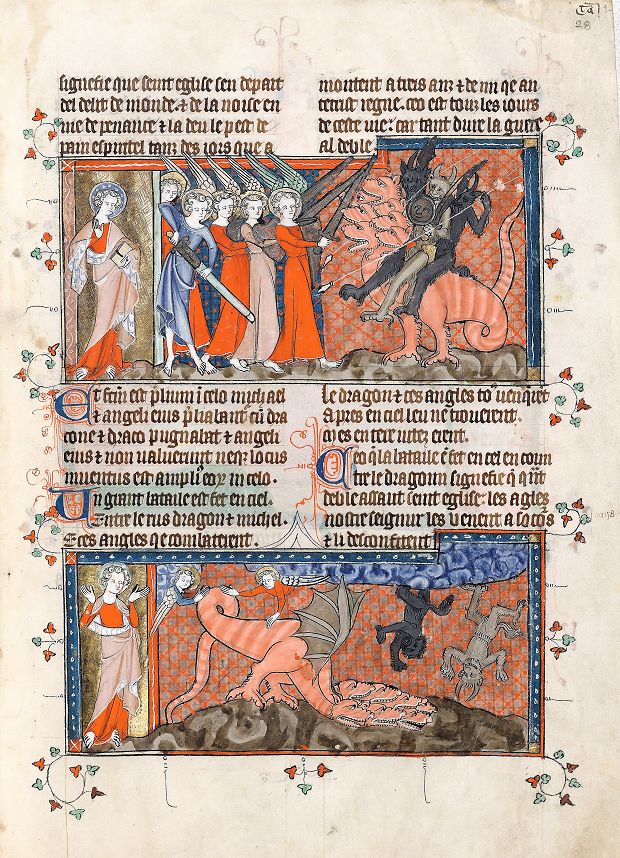 signefie que seint eglise sen depart
del delit de monde ⁊ de la noise en
uie de penance ⁊ la deu le pest de
pain espiritel tanz des iors que a
montent a treis anz ⁊ demi qe an
tecrist regne. ceo est touz les iours
de ceste uie: car tant dure la guere
al deble.
Et factum est prelium in celo michael
⁊ angeli eius preliabantur cum dra
cone ⁊ draco pugnabat ⁊ angeli
eius ⁊ non ualuerunt neque locus
inuentus est amplius eorum in celo.
Un grant bataile est fet en ciel.
Entre le rus dragon ⁊ michel.
E ces angles qe combaterent.
le dragon ⁊ ces angles
apres en ciel leu ne trouerent.
en tere
Ceo qe la bataile est fet en cel en coun
tre le dragoun signefie
deble assaut seint eglise: les angles
nostre seignur les uenent a socurs
⁊ li desconfetent
28